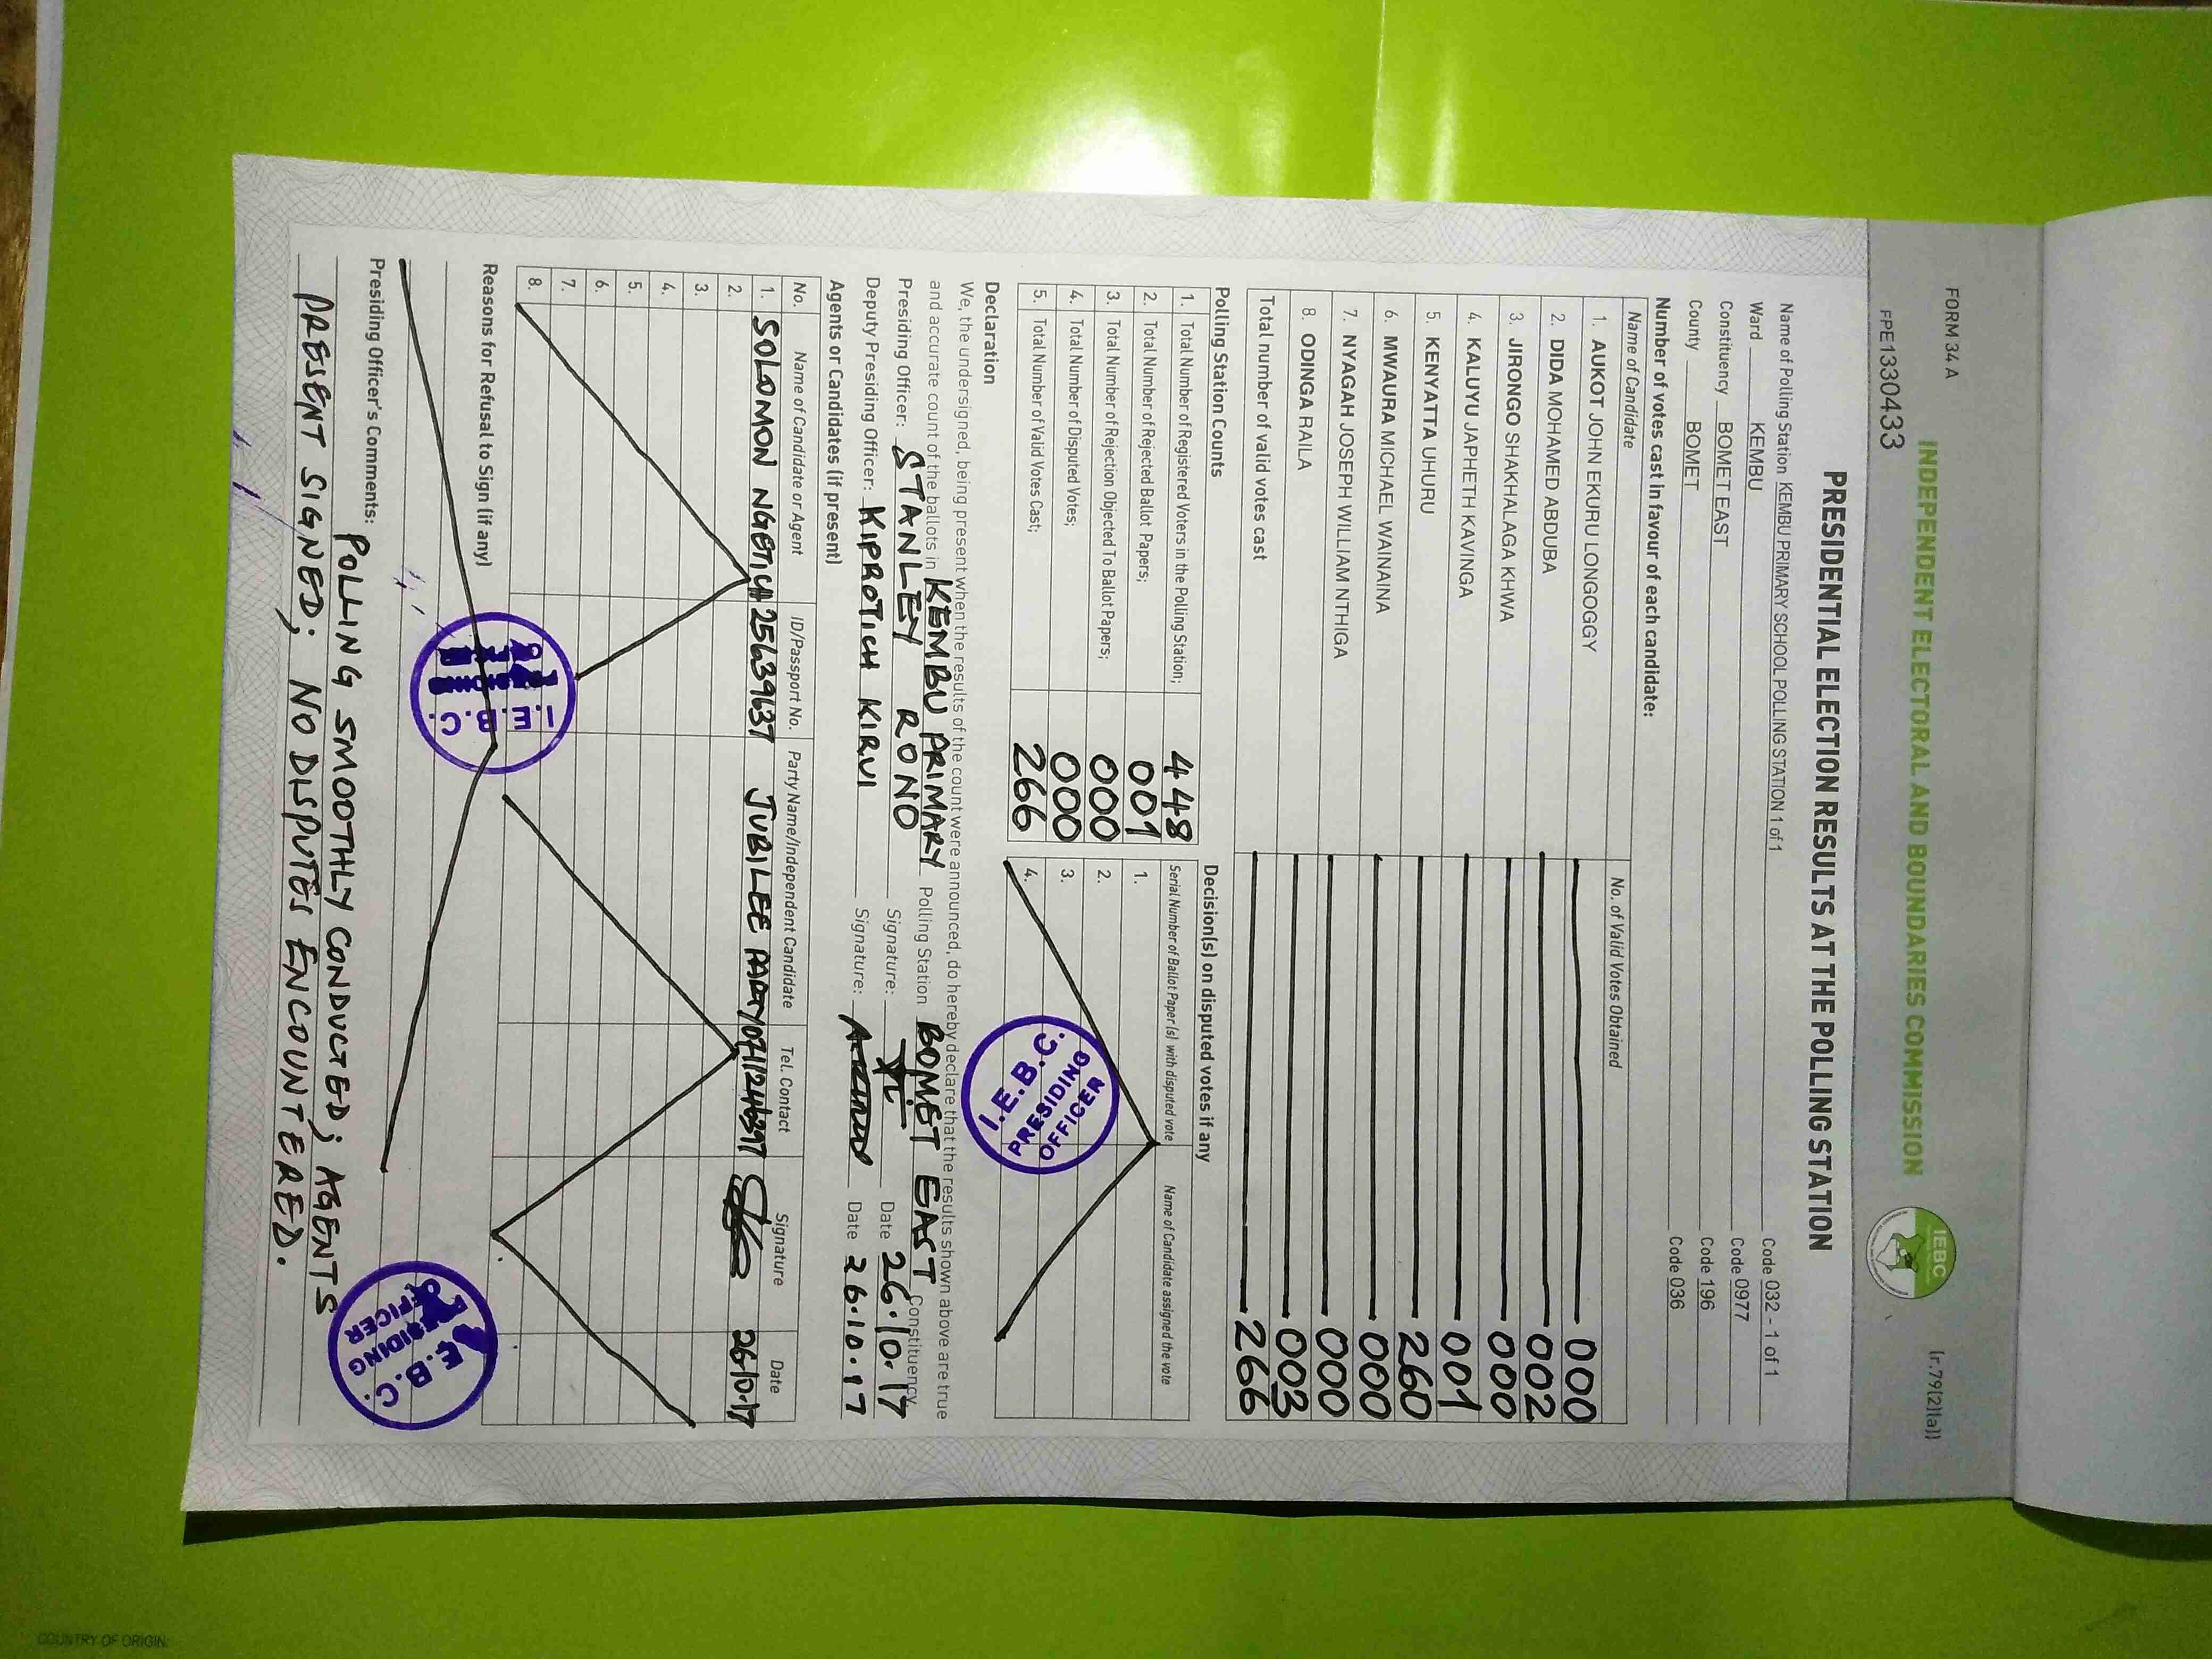 FORM 34 A
(r.79(2)(a))
INDEPENDENT ELECTORAL AND BOUNDARIES COMMISSION
IEBC
FPE1330433
PRESIDENTIAL ELECTION RESULTS AT THE POLLING STATION
Name of Polling Station KEMBU PRIMARY SCHOOL POLLING STATION 1 of 1 Code 032 - 1 of 1
Ward KEMBU Code 0977
Constituency BOMET EAST Code 196
County BOMET Code 036
Number of votes cast in favour of each candidate:
Name of Candidate No. of Valid Votes Obtained
1. AUKOT JOHN EKURU LONGOGGY 000
2. DIDA MOHAMED ABDUBA 002
3. JIRONGO SHAKHALAGA KHWA 000
4. KALUYU JAPHETH KAVINGA 001
5. KENYATTA UHURU 260
6. MWAURA MICHAEL WAINAINA 000
7. NYAGAH JOSEPH WILLIAM NTHIGA 000
8. ODINGA RAILA 003
Total number of valid votes cast 266
Polling Station Counts
1. Total Number of Registered Voters in the Polling Station; 448
2. Total Number of Rejected Ballot Papers; 001
3. Total Number of Rejection Objected To Ballot Papers; 000
4. Total Number of Disputed Votes; 000
5. Total Number of Valid Votes Cast; 266
Decision(s) on disputed votes if any
Serial Number of Ballot Paper (s) with disputed vote Name of Candidate assigned the vote
1.
2.
3.
4.
I.E.B.C.
PRESIDING
OFFICER
Declaration
We, the undersigned, being present when the results of the count were announced, do hereby declare that the results shown above are true
and accurate count of the ballots in KEMBU PRIMARY Polling Station BOMET EAST Constituency
Presiding Officer: STANLEY RONO Signature: Date 26.10.17
Deputy Presiding Officer: KIPROTICH KIRUI Signature: Date 26.10.17
Agents or Candidates (if present)
No. Name of Candidate or Agent ID/Passport No. Party Name/Independent Candidate Tel. Contact Signature Date
1. SOLOMON NGETICH 25639637 JUBILEE PARTY 0711246397 26.10.17
2.
3.
4.
5.
6.
7.
8.
Reasons for Refusal to Sign (if any)
I.E.B.C.
Presiding Officer's Comments: POLLING SMOOTHLY CONDUCTED; AGENTS
PRESENT SIGNED; NO DISPUTES ENCOUNTERED.
E.B.C.
OFFICER
COUNTRY OF ORIGIN: